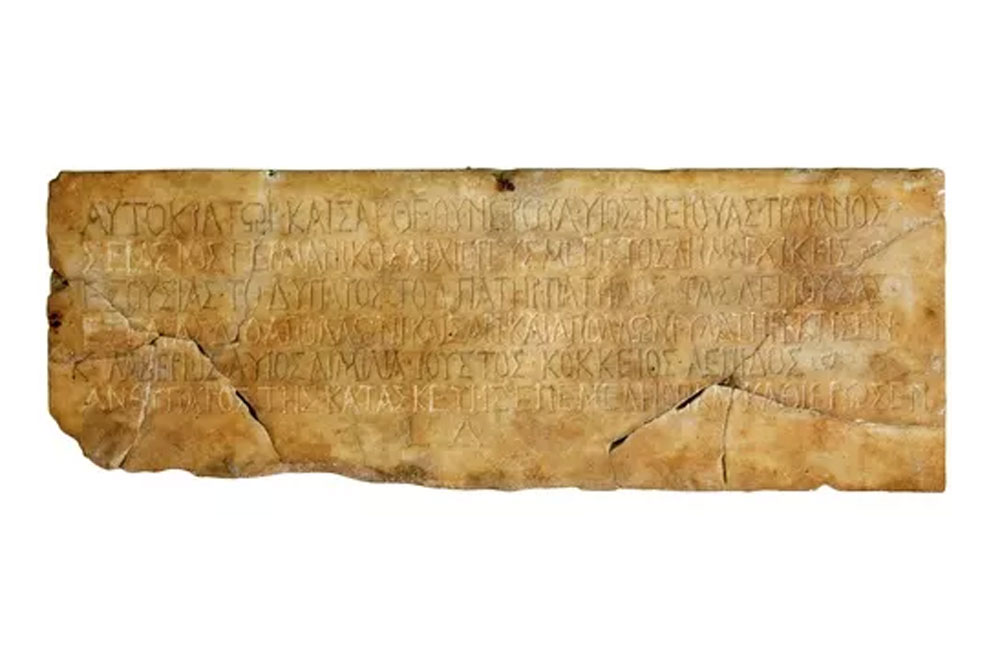 ΑΥΤΟΚΡΑΤΩΡ ΚΑΙΣΑΡ ΘΕΟΥ ΝΕΡΟΥΑ ΥΙΟΣ ΝΕΡΟΥΑΣ ΤΡΑΙΑΝΟΣ
ΣΕΒΑΣΤΟΣ ΓΕΡΜΑΝΙΚΟΣ ΑΡΧΙΕΡΕΥΣ ΜΕΓΙΣΤΟΣ ΔΗΜΑΡΧΙΚΗΣ
ΕΞΟΥΣΙΑΣ ΤΟ Δ ΥΠΑΤΟΣ ΤΟ Δ ΠΑΤΗΡ ΠΑΤΡΙΔΟΣ ΤΑΣ ΛΕΙΠΟΥΣΑΣ
ΔΥΟ ΑΠΟΛΛΩΝΙ ΚΑΙΣΑΡΙ ΚΑΙ ΑΠΟΛΛΩΝΙ ΥΛΑΤΗ ΕΚΤΙΣΕΝ
Κ ΛΑΒΕΡΙΟΣ Λ ΥΙΟΣ ΑΙΜΙΛΙΑ ΙΟΥΣΤΟΣ ΚΟΚΚΕΙΟΣ ΛΕΠΙΔΟΣ
ΑΝΘΥΠΑΤΟΣ ΤΗΣ ΚΑΤΑΣΚΕΥΗΣ ΕΠΕΜΕΛΗΘΗ ΚΑΙ ΚΑΘΙΕΡΩΣΕΝ
L Δ